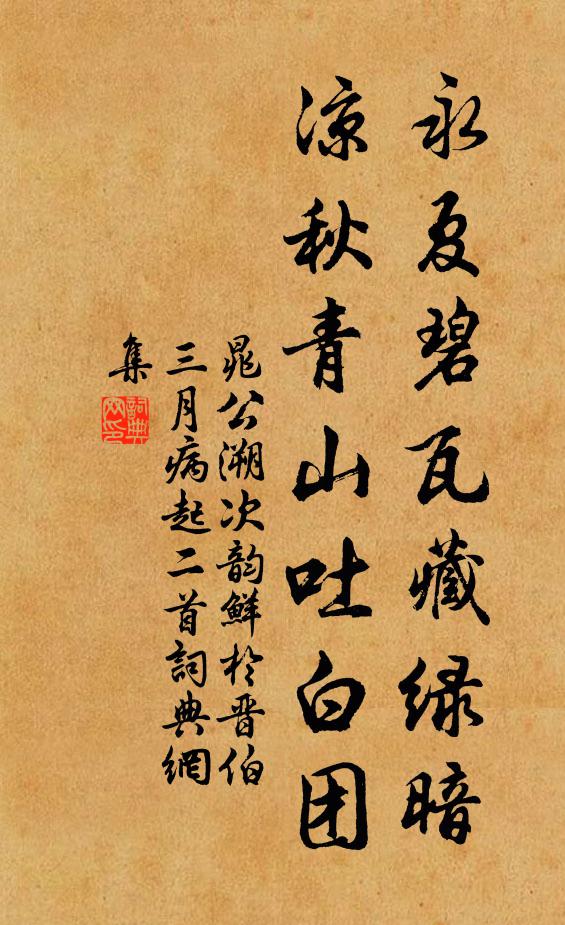 永夏碧瓦藏绿暗
凉秋青山吐白团
晁公溯次韵鲜於晋伯
三月病起二首詞典網
集
詞典
网印